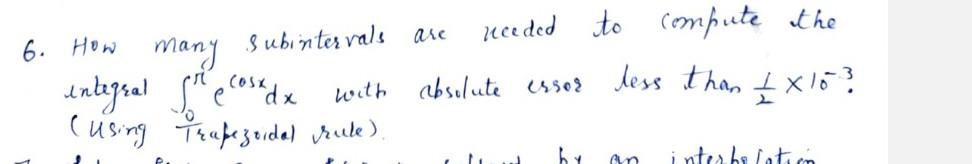 6. How many subintervals are needed to compute the
integral ∫₀^π e^{cosx} dx with absolute error less than 1/2 × 10⁻³?
(Using Trapezoidal rule).
by an interpolation